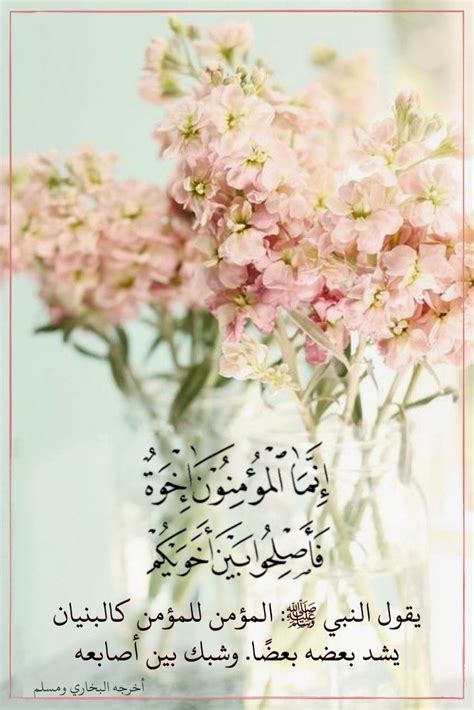 إِنَّمَا ٱلْمُؤْمِنُونَ إِخْوَةٌ
فَأَصْلِحُوا۟ بَيْنَ أَخَوَيْكُمْ
يقول النبي ﷺ: المؤمن للمؤمن كالبنيان
يشد بعضه بعضًا. وشبك بين أصابعه
أخرجه البخاري ومسلم